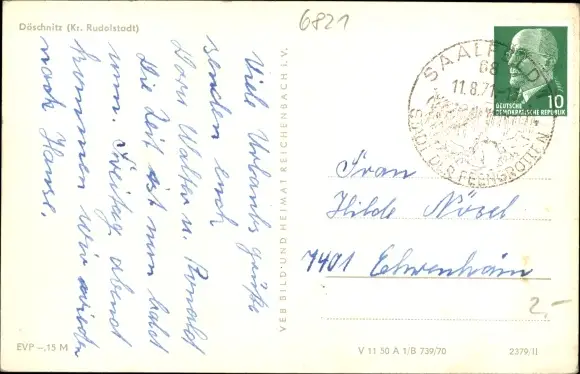 Döschnitz (Kr. Rudolstadt)
6821
Viele Urlaubsgrüße
senden euch
Dora Walter u. Ronald
Die Zeit ist nun bald
um. Freitag abend
kommen wir wieder
nach Hause.
VEB BILD UND HEIMAT REICHENBACH I. V.
SAALFELD
68
11.8.71
STADT DER FEENGROTTEN
10
DEUTSCHE
DEMOKRATISCHE REPUBLIK
Frau
Hilde Nösel
7401 Ehrenhain
2,-
EVP -,15 M
V 11 50 A 1/B 739/70
2379/II